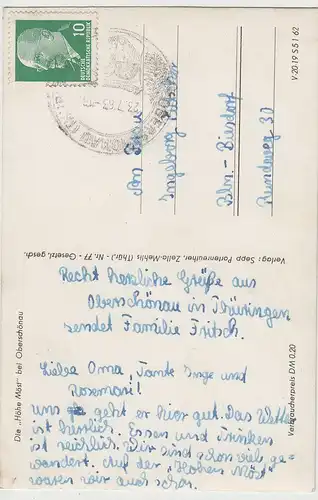 10
DEUTSCHE
DEMOKRATISCHE REPUBLIK
V-20-19 S 51 62
Ingeborg
Bln.-Biesdorf
Rundweg 37
Verlag: Sepp Partenreuther, Zella-Mehlis (Thür.) - Nr. 77 - Gesetzl. gesch.
Recht herzliche Grüße aus
Oberschönau in Thüringen
sendet Familie Fritsch.
Liebe Oma, Tante Inge und
Rosemarie!
Uns geht er hier gut. Das Wetter
ist herrlich. Essen und Trinken
ist reichlich. Wir sind schon viel ge-
wandert. Auf der "Hohen Möst"
waren wir auch schon.
Die „Hohe Möst" bei Oberschönau
Verbraucherpreis DM 0,20